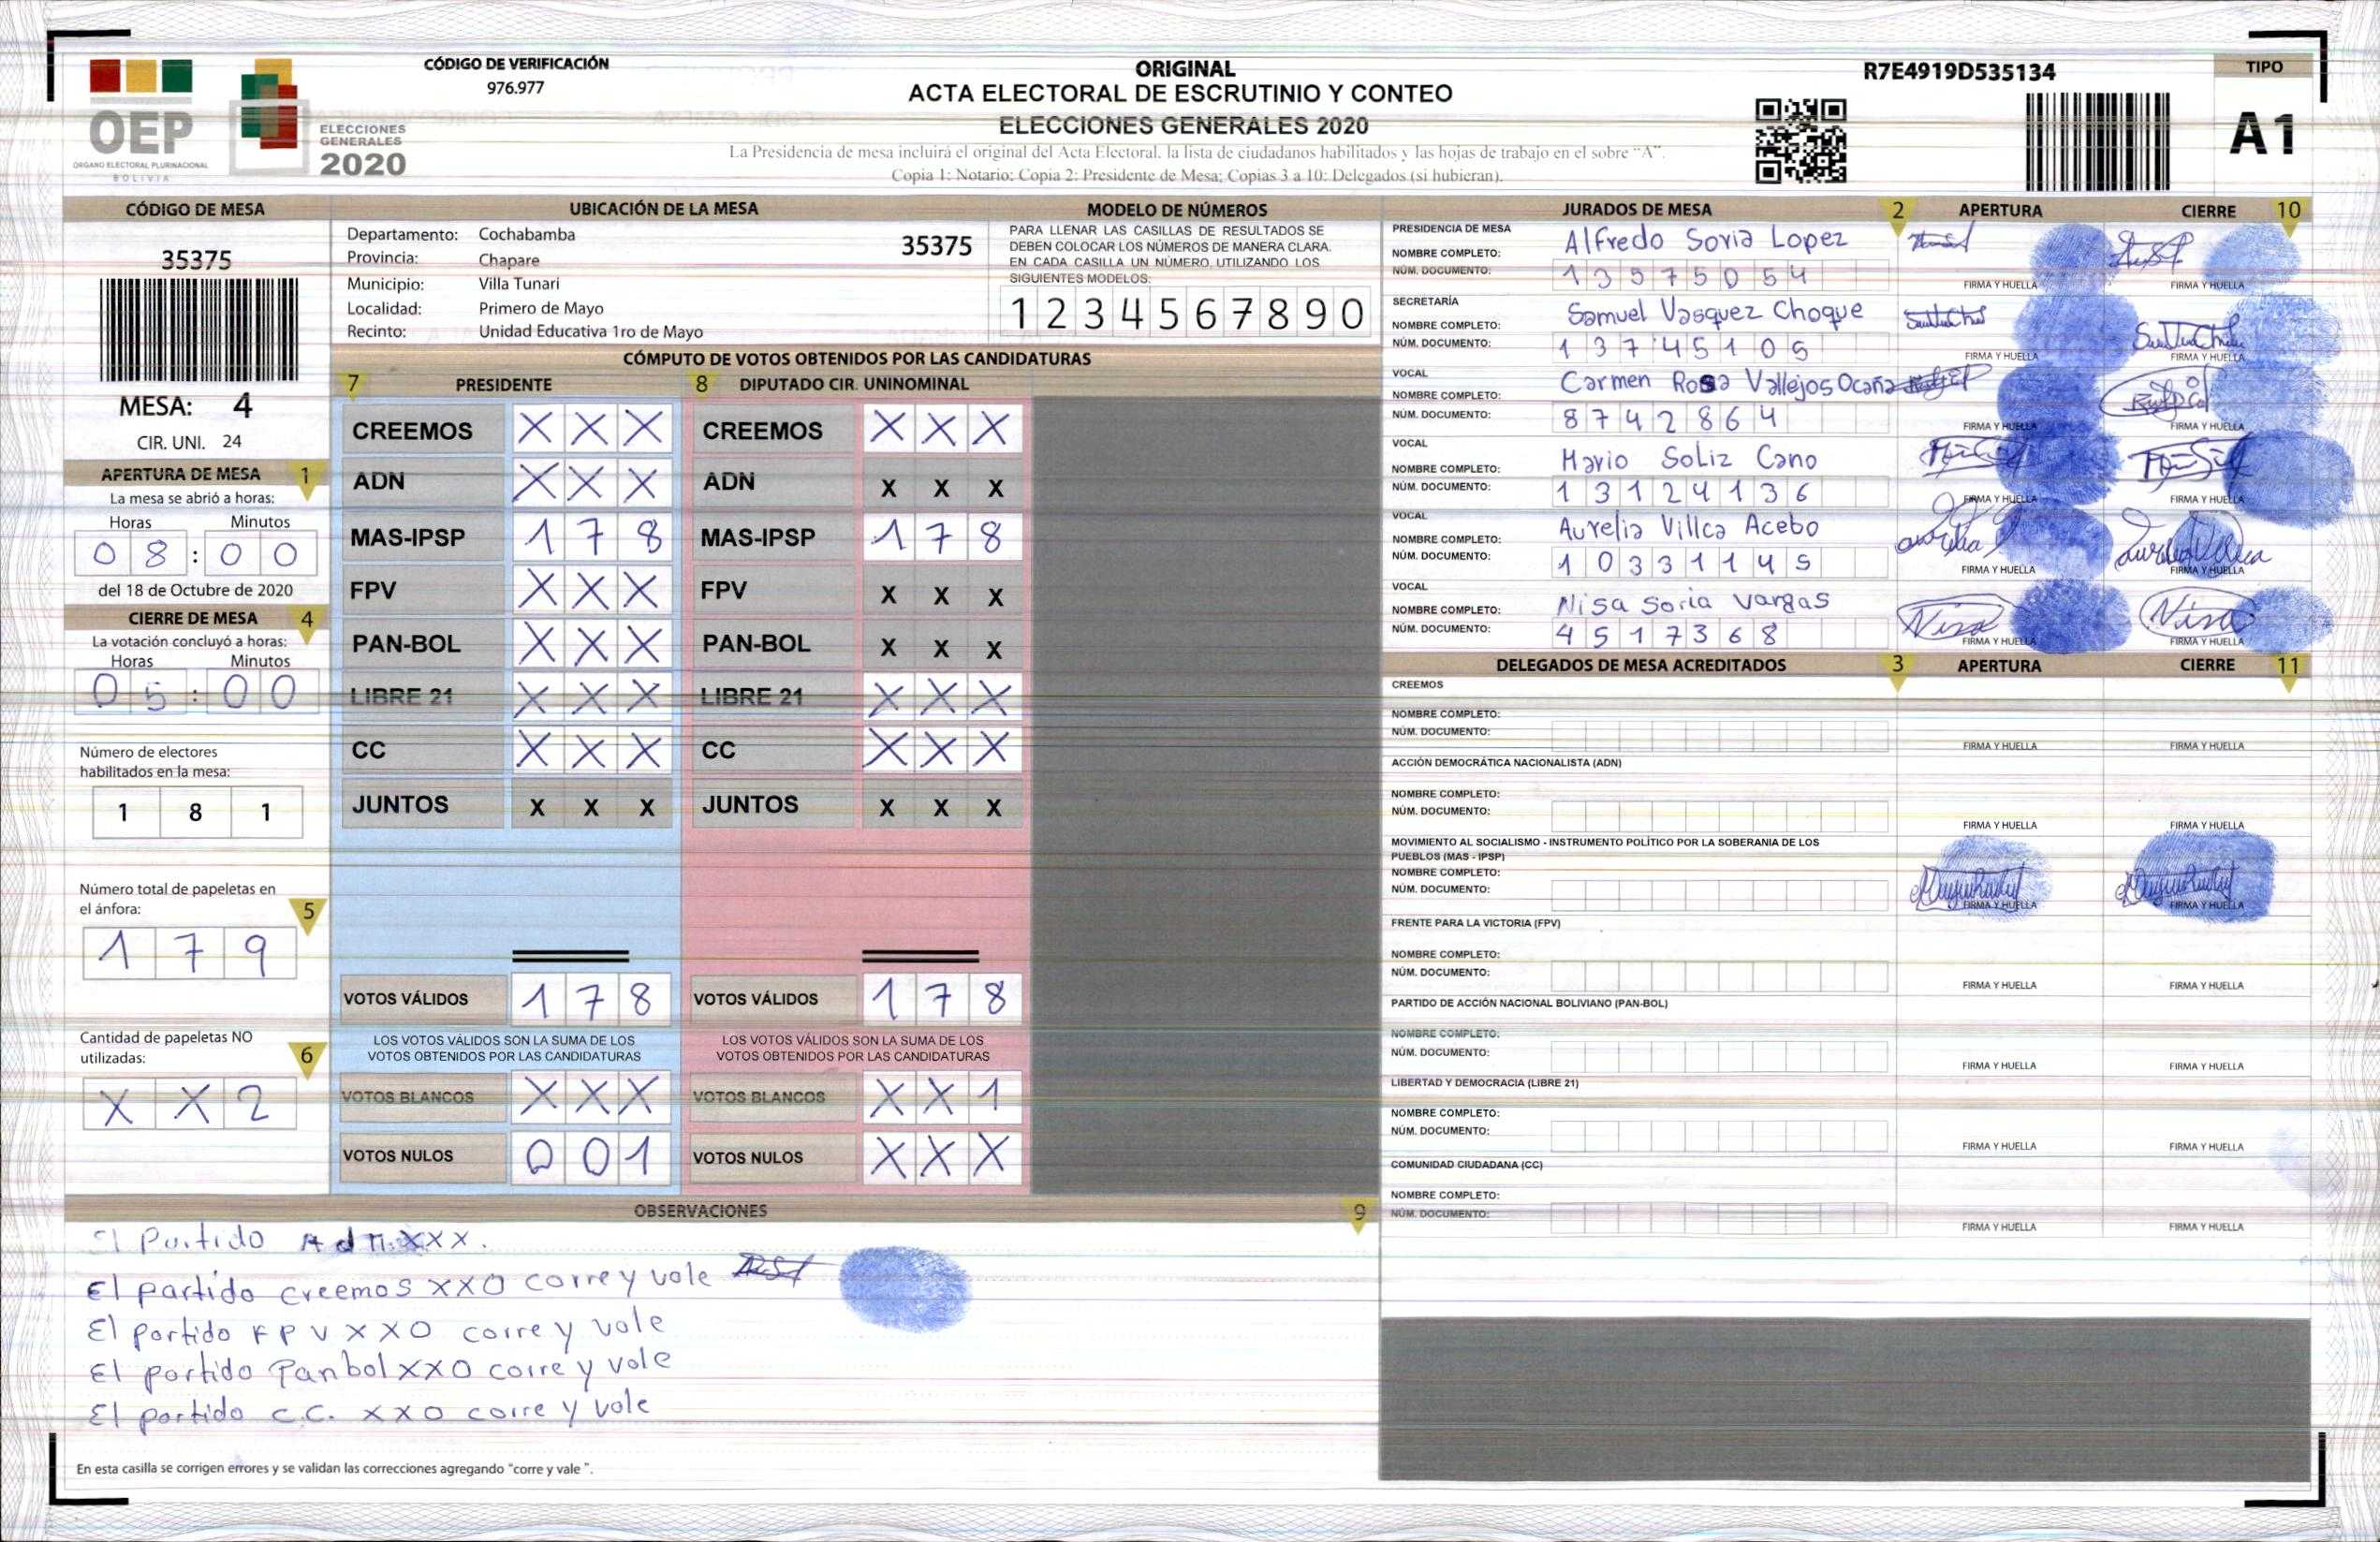 OEP
ÓRGANO ELECTORAL PLURINACIONAL
BOLIVIA
ELECCIONES
GENERALES
2020
CÓDIGO DE VERIFICACIÓN
976.977
ORIGINAL
ACTA ELECTORAL DE ESCRUTINIO Y CONTEO
ELECCIONES GENERALES 2020
La Presidencia de mesa incluirá el original del Acta Electoral, la lista de ciudadanos habilitados y las hojas de trabajo en el sobre “A”.
Copia 1: Notario; Copia 2: Presidente de Mesa; Copias 3 a 10: Delegados (si hubieran).
R7E4919D535134
TIPO
A1
CÓDIGO DE MESA
35375
MESA: 4
CIR. UNI. 24
APERTURA DE MESA 1
La mesa se abrió a horas:
Horas Minutos
0 8 : 0 0
del 18 de Octubre de 2020
CIERRE DE MESA 4
La votación concluyó a horas:
Horas Minutos
0 5 : 0 0
Número de electores
habilitados en la mesa:
1 8 1
Número total de papeletas en
el ánfora: 5
1 7 9
Cantidad de papeletas NO
utilizadas: 6
X X 2
UBICACIÓN DE LA MESA
Departamento: Cochabamba
Provincia: Chapare
Municipio: Villa Tunari
Localidad: Primero de Mayo
Recinto: Unidad Educativa 1ro de Mayo
35375
MODELO DE NÚMEROS
PARA LLENAR LAS CASILLAS DE RESULTADOS SE
DEBEN COLOCAR LOS NÚMEROS DE MANERA CLARA.
EN CADA CASILLA UN NÚMERO, UTILIZANDO LOS
SIGUIENTES MODELOS:
1 2 3 4 5 6 7 8 9 0
CÓMPUTO DE VOTOS OBTENIDOS POR LAS CANDIDATURAS
7 PRESIDENTE 8 DIPUTADO CIR. UNINOMINAL
CREEMOS X X X CREEMOS X X X
ADN X X X ADN X X X
MAS-IPSP 1 7 8 MAS-IPSP 1 7 8
FPV X X X FPV X X X
PAN-BOL X X X PAN-BOL X X X
LIBRE 21 X X X LIBRE 21 X X X
CC X X X CC X X X
JUNTOS X X X JUNTOS X X X
VOTOS VÁLIDOS 1 7 8 VOTOS VÁLIDOS 1 7 8
LOS VOTOS VÁLIDOS SON LA SUMA DE LOS LOS VOTOS VÁLIDOS SON LA SUMA DE LOS
VOTOS OBTENIDOS POR LAS CANDIDATURAS VOTOS OBTENIDOS POR LAS CANDIDATURAS
VOTOS BLANCOS X X X VOTOS BLANCOS X X 1
VOTOS NULOS 0 0 1 VOTOS NULOS X X X
OBSERVACIONES 9
El Partido Adn XXX.
El partido creemos XXO corre y vale
El partido FPV XXO corre y vale
El partido Panbol XXO corre y vale
El partido C.C. XXO corre y vale
En esta casilla se corrigen errores y se validan las correcciones agregando “corre y vale ”.
JURADOS DE MESA 2 APERTURA CIERRE 10
PRESIDENCIA DE MESA
NOMBRE COMPLETO: Alfredo Soria Lopez
NÚM. DOCUMENTO: 1 3 5 7 5 0 5 4
FIRMA Y HUELLA FIRMA Y HUELLA
SECRETARÍA
NOMBRE COMPLETO: Samuel Vasquez Choque
NÚM. DOCUMENTO: 1 3 7 4 5 1 0 5
FIRMA Y HUELLA FIRMA Y HUELLA
VOCAL
NOMBRE COMPLETO: Carmen Rosa Vallejos Ocaña
NÚM. DOCUMENTO: 8 7 4 2 8 6 4
FIRMA Y HUELLA FIRMA Y HUELLA
VOCAL
NOMBRE COMPLETO: Mario Soliz Cano
NÚM. DOCUMENTO: 1 3 1 2 4 1 3 6
FIRMA Y HUELLA FIRMA Y HUELLA
VOCAL
NOMBRE COMPLETO: Aurelia Villca Acebo
NÚM. DOCUMENTO: 1 0 3 3 1 1 4 5
FIRMA Y HUELLA FIRMA Y HUELLA
VOCAL
NOMBRE COMPLETO: Nisa Soria Vargas
NÚM. DOCUMENTO: 4 5 1 7 3 6 8
FIRMA Y HUELLA FIRMA Y HUELLA
DELEGADOS DE MESA ACREDITADOS 3 APERTURA CIERRE 11
CREEMOS
NOMBRE COMPLETO:
NÚM. DOCUMENTO:
FIRMA Y HUELLA FIRMA Y HUELLA
ACCIÓN DEMOCRÁTICA NACIONALISTA (ADN)
NOMBRE COMPLETO:
NÚM. DOCUMENTO:
FIRMA Y HUELLA FIRMA Y HUELLA
MOVIMIENTO AL SOCIALISMO - INSTRUMENTO POLÍTICO POR LA SOBERANIA DE LOS
PUEBLOS (MAS - IPSP)
NOMBRE COMPLETO:
NÚM. DOCUMENTO:
FIRMA Y HUELLA FIRMA Y HUELLA
FRENTE PARA LA VICTORIA (FPV)
NOMBRE COMPLETO:
NÚM. DOCUMENTO:
FIRMA Y HUELLA FIRMA Y HUELLA
PARTIDO DE ACCIÓN NACIONAL BOLIVIANO (PAN-BOL)
NOMBRE COMPLETO:
NÚM. DOCUMENTO:
FIRMA Y HUELLA FIRMA Y HUELLA
LIBERTAD Y DEMOCRACIA (LIBRE 21)
NOMBRE COMPLETO:
NÚM. DOCUMENTO:
FIRMA Y HUELLA FIRMA Y HUELLA
COMUNIDAD CIUDADANA (CC)
NOMBRE COMPLETO:
NÚM. DOCUMENTO:
FIRMA Y HUELLA FIRMA Y HUELLA